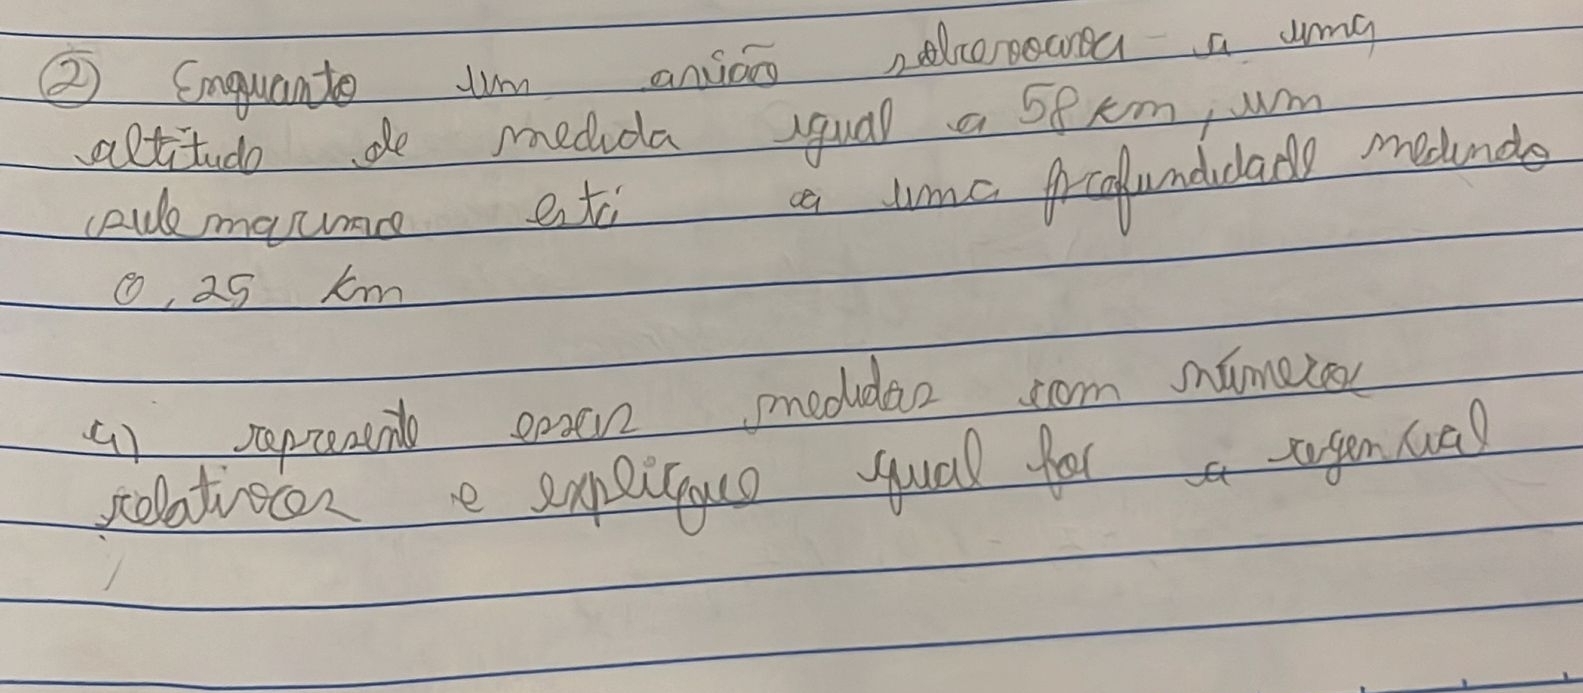 ② Enquanto um avião sobrevoava a uma
altitude de medida igual a 58 km, um
submarino está a uma profundidade medindo
0,25 km
a) represente essas medidas com números
relativos e explique qual for a